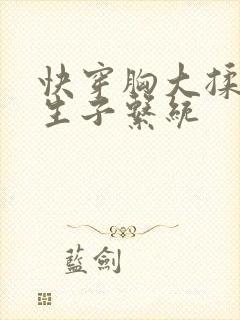 快穿胸大揉
生子繫統
藍劍